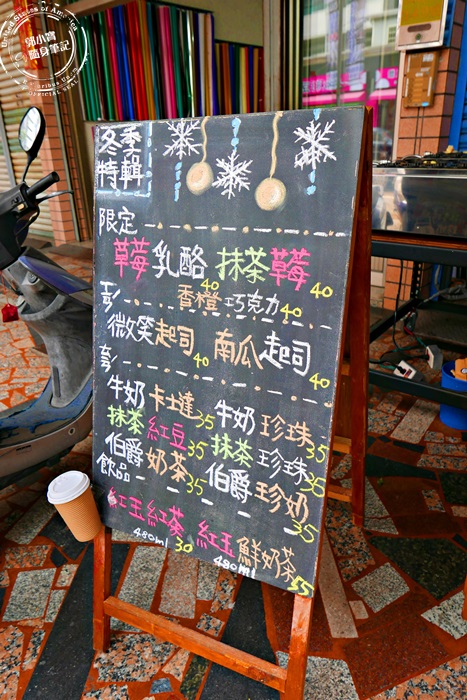 郭小寶
隨身筆記
冬季
特輯
限定
草莓乳酪 40 抹茶草莓 40
香橙巧克力 40
微笑起司 40 南瓜起司 40
牛奶卡士達 35 牛奶珍珠 35
抹茶紅豆 35 抹茶珍珠 35
伯爵奶茶 35 伯爵珍奶 35
飲品
紅玉紅茶 30 紅玉鮮奶茶 55
480ml 480ml